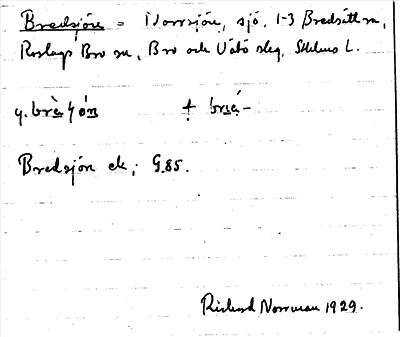 Bredsjön = Norrsjön, sjö, 1-3 Bredsätt sn,
Roslags Bro sn, Bro och Vätö slag, Sthlms L.
y. brä
+ brä-
Bredsjön ek, G.85.
Richard Norrman 1929.